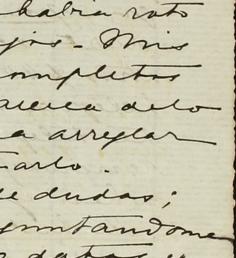 habia roto
jos. Mis
completos
acerca de lo
a arreglar
tarlo.
de dudas;
guntandome
datos y